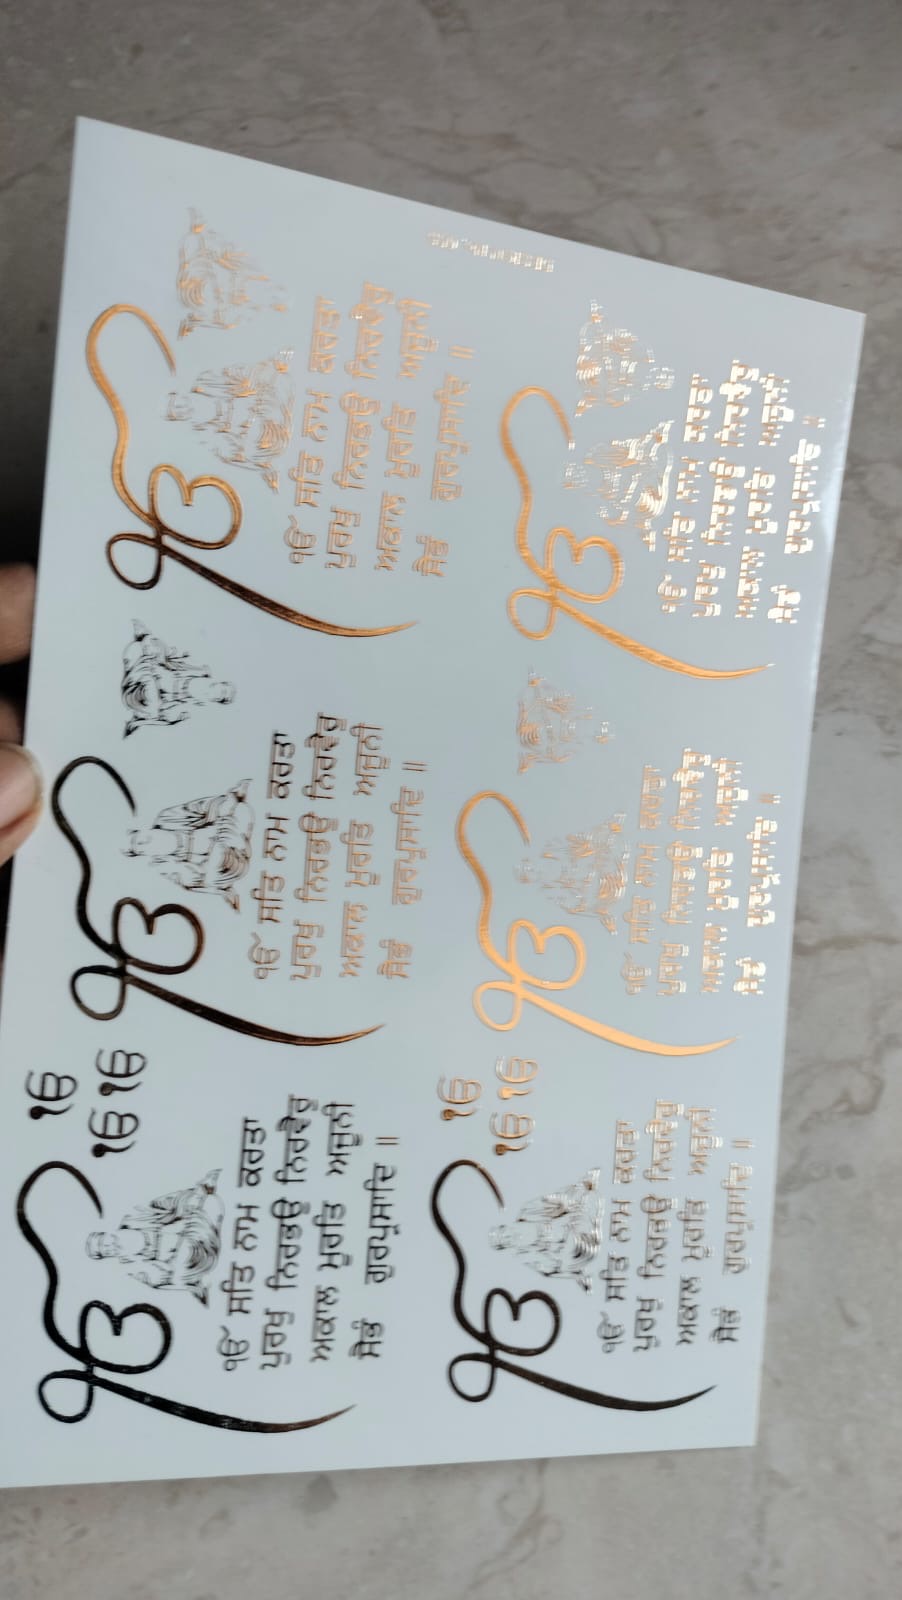 ੴ
ੴ ਸਤਿ ਨਾਮ ਕਰਤਾ
ਪੁਰਖੁ ਨਿਰਭਉ ਨਿਰਵੈਰੁ
ਅਕਾਲ ਮੂਰਤਿ ਅਜੂਨੀ
ਸੈਭੰ ਗੁਰਪ੍ਰਸਾਦਿ ॥
ੴ
ੴ ੴ
ੴ
ੴ ਸਤਿ ਨਾਮ ਕਰਤਾ
ਪੁਰਖੁ ਨਿਰਭਉ ਨਿਰਵੈਰੁ
ਅਕਾਲ ਮੂਰਤਿ ਅਜੂਨੀ
ਸੈਭੰ ਗੁਰਪ੍ਰਸਾਦਿ ॥
ੴ
ੴ ਸਤਿ ਨਾਮ ਕਰਤਾ
ਪੁਰਖੁ ਨਿਰਭਉ ਨਿਰਵੈਰੁ
ਅਕਾਲ ਮੂਰਤਿ ਅਜੂਨੀ
ਸੈਭੰ ਗੁਰਪ੍ਰਸਾਦਿ ॥
ੴ
ੴ ਸਤਿ ਨਾਮ ਕਰਤਾ
ਪੁਰਖੁ ਨਿਰਭਉ ਨਿਰਵੈਰੁ
ਅਕਾਲ ਮੂਰਤਿ ਅਜੂਨੀ
ਸੈਭੰ ਗੁਰਪ੍ਰਸਾਦਿ ॥
ੴ
ੴ ੴ
ੴ
ੴ ਸਤਿ ਨਾਮ ਕਰਤਾ
ਪੁਰਖੁ ਨਿਰਭਉ ਨਿਰਵੈਰੁ
ਅਕਾਲ ਮੂਰਤਿ ਅਜੂਨੀ
ਸੈਭੰ ਗੁਰਪ੍ਰਸਾਦਿ ॥
ੴ
ੴ ਸਤਿ ਨਾਮ ਕਰਤਾ
ਪੁਰਖੁ ਨਿਰਭਉ ਨਿਰਵੈਰੁ
ਅਕਾਲ ਮੂਰਤਿ ਅਜੂਨੀ
ਸੈਭੰ ਗੁਰਪ੍ਰਸਾਦਿ ॥